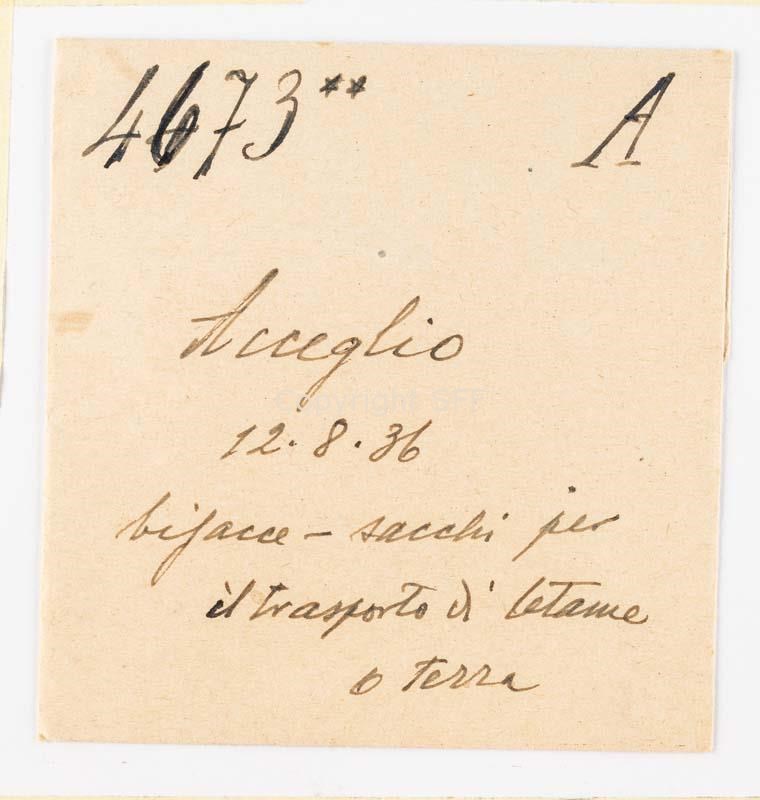 4673** A
Acceglio
copyright SFI
12.8.36
bisacce - sacchi per
il trasporto di letame
o terra